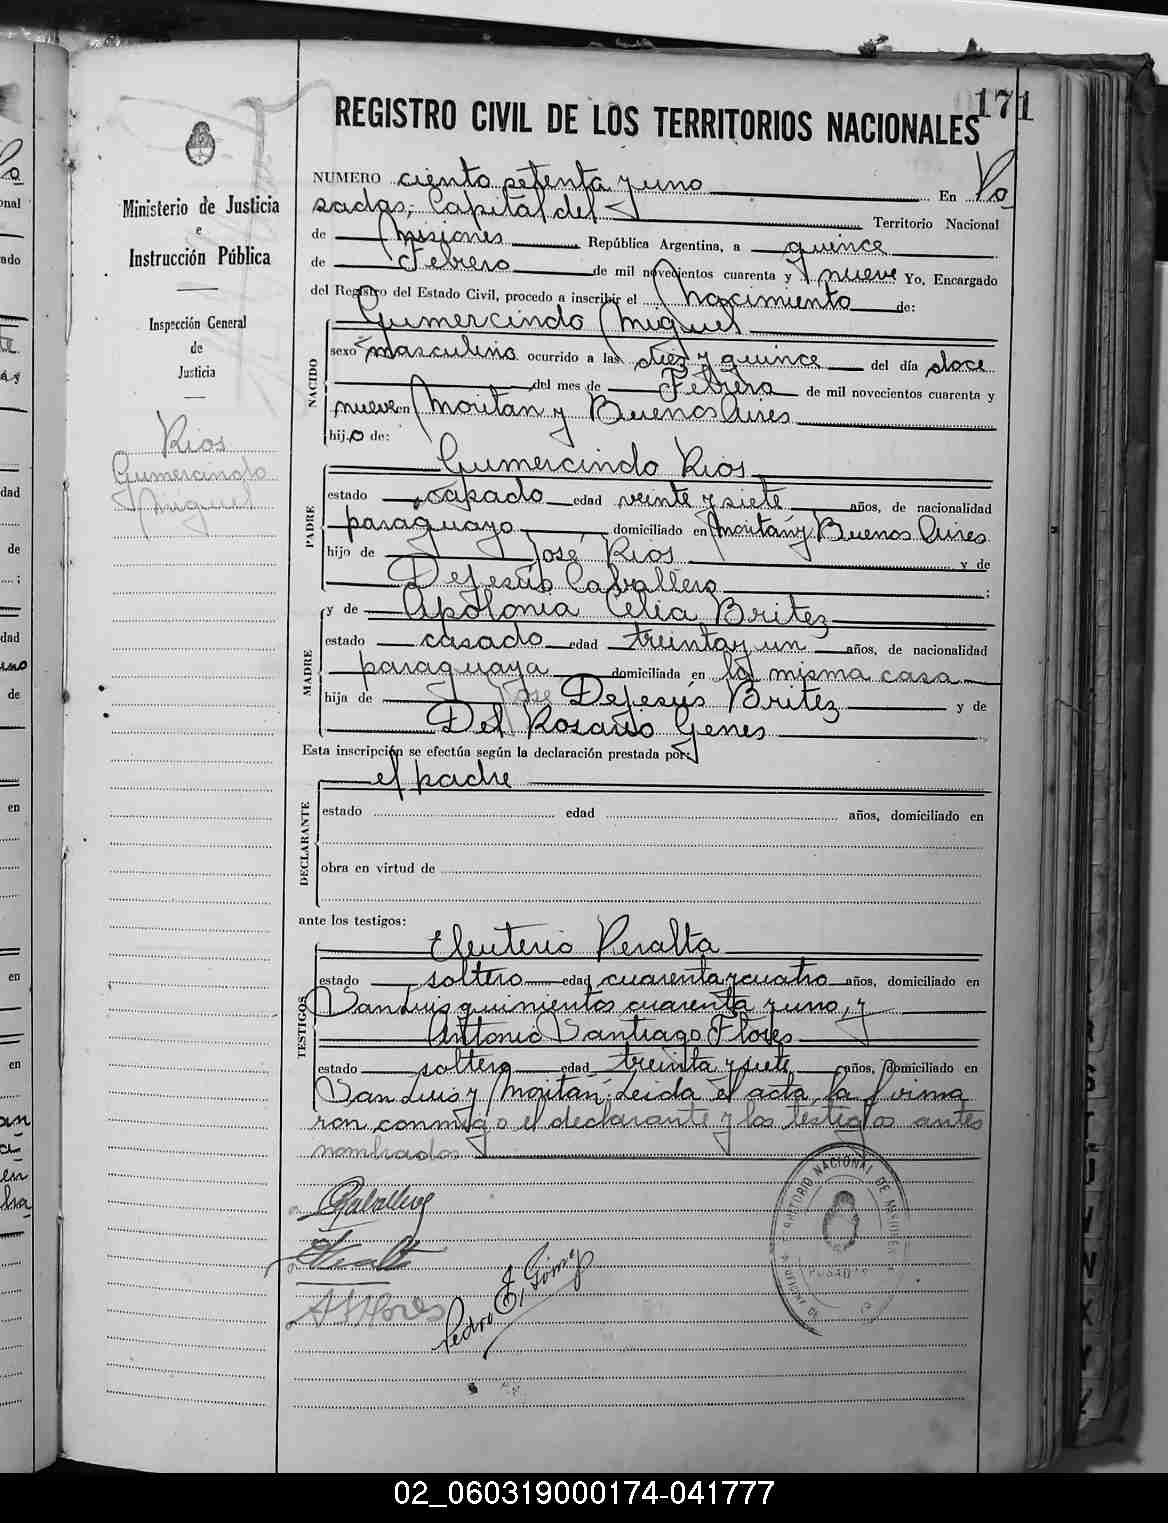 171
REGISTRO CIVIL DE LOS TERRITORIOS NACIONALES
Ministerio de Justicia
e
Instrucción Pública
Inspección General
de
Justicia
Rios
Gumercindo
Miguel
NUMERO ciento setenta y uno En Po
sadas, Capital del Territorio Nacional
de Misiones República Argentina, a quince
de Febrero de mil novecientos cuarenta y nueve Yo, Encargado
del Registro del Estado Civil, procedo a inscribir el Nacimiento de:
Gumercindo Miguel
NACIDO
sexo masculino ocurrido a las diez y quince del día doce
del mes de Febrero de mil novecientos cuarenta y
nueve en Moritan y Buenos Aires
hijo de:
Gumercindo Rios
PADRE
estado casado edad veinte y siete años, de nacionalidad
paraguayo domiciliado en Moritan y Buenos Aires
hijo de José Rios y de
Dejesús Caballero ;
y de Apolonia Celia Britez
MADRE
estado casado edad treinta y un años, de nacionalidad
paraguaya domiciliada en la misma casa
hija de José Dejesús Britez y de
Del Rosario Genes
Esta inscripción se efectúa según la declaración prestada por:
el padre
DECLARANTE
estado edad años, domiciliado en
obra en virtud de
ante los testigos:
Eleuterio Peralta
TESTIGOS
estado soltero edad cuarenta y cuatro años, domiciliado en
San Luis quinientos cuarenta y uno, y
Antonio Santiago Flores
estado soltero edad treinta y siete años, domiciliado en
San Luis y Moitan. Leida el acta, la firma
ron conmigo el declarante y los testigos antes
nombrados
TERRITORIO NACIONAL DE MISIONES
POSADAS
Pedro E. Gómez
A S Flores
02_060319000174-041777